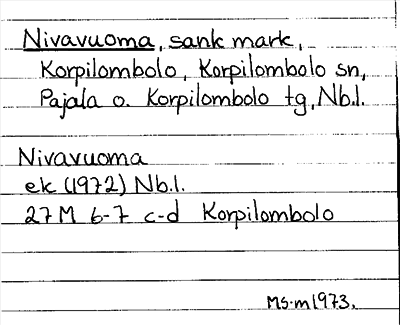 Nivavuoma, sank mark,
Korpilombolo, Korpilombolo sn,
Pajala o. Korpilombolo tg, Nb.l.
Nivavuoma
ek (1972) Nb.l.
27 M 6-7 c-d Korpilombolo
Ms.m 1973.